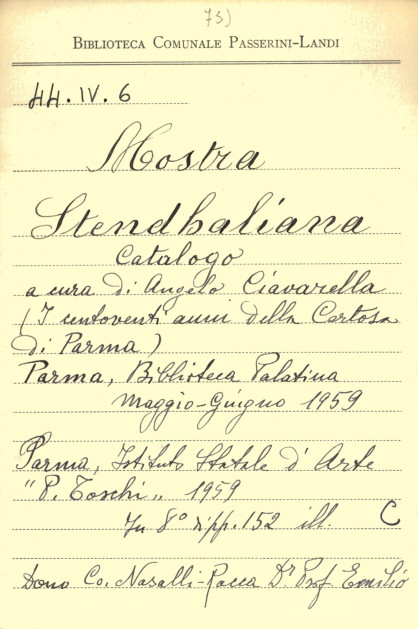 73)
BIBLIOTECA COMUNALE PASSERINI-LANDI
44.IV.6
Mostra
Stendhaliana
Catalogo
a cura di Angelo Ciavarella
(I centoventi anni della Certosa
di Parma)
Parma, Biblioteca Palatina
Maggio-Giugno 1959
Parma, Istituto Statale d'Arte
"P. Toschi" 1959
In 8° di pp. 152 ill. C
Dono Co. Nasalli-Rocca Dr Prof. Emilio